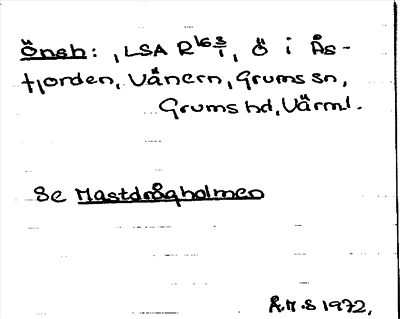 Önsh: , LSA R16 3/1, Ö i Ås-
fjorden, Vänern, Grums sn,
Grums hd, Värml.
Se Mastdrågholmen
Å.M.S 1972.